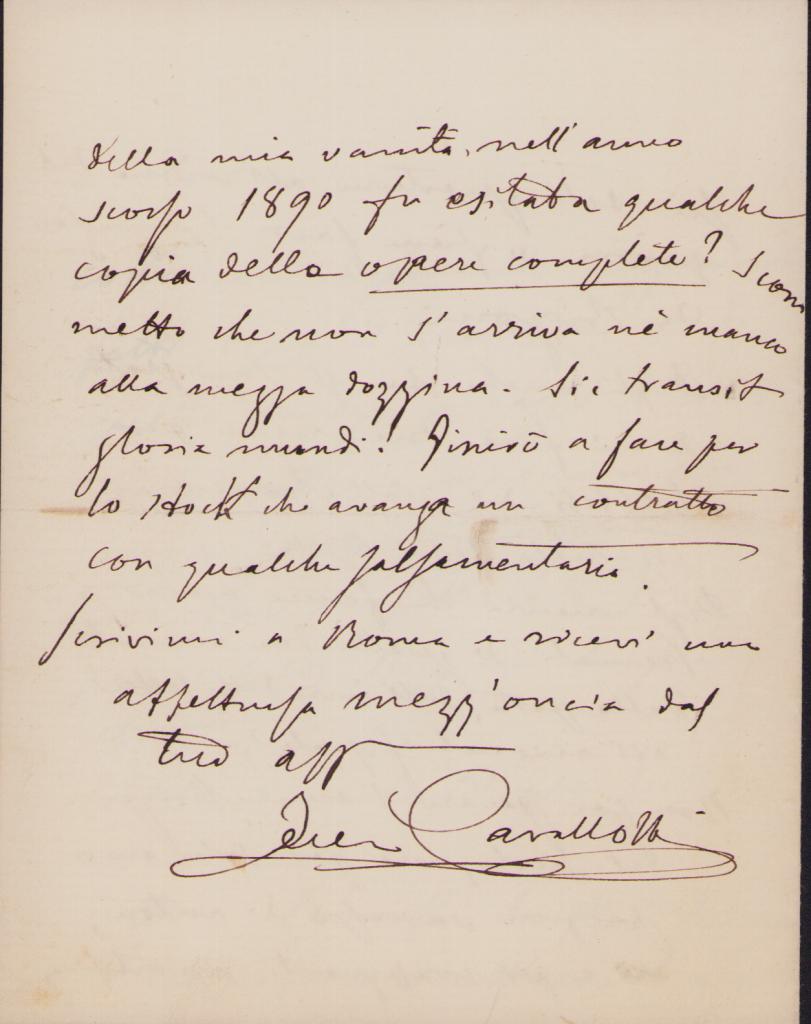 della mia vanità, nell'anno
scorso 1890 fu esitata qualche
copia delle opere complete? Scom
metto che non s'arriva nè manco
alla mezza dozzina. Sic transit
gloria mundi! Finirò a fare per
lo stock che avanza un contratto
con qualche salsamentario.
Scrivimi a Roma e ricevi una
affettuosa mezz'oncia dal
tuo aff
Felice Cavallotti